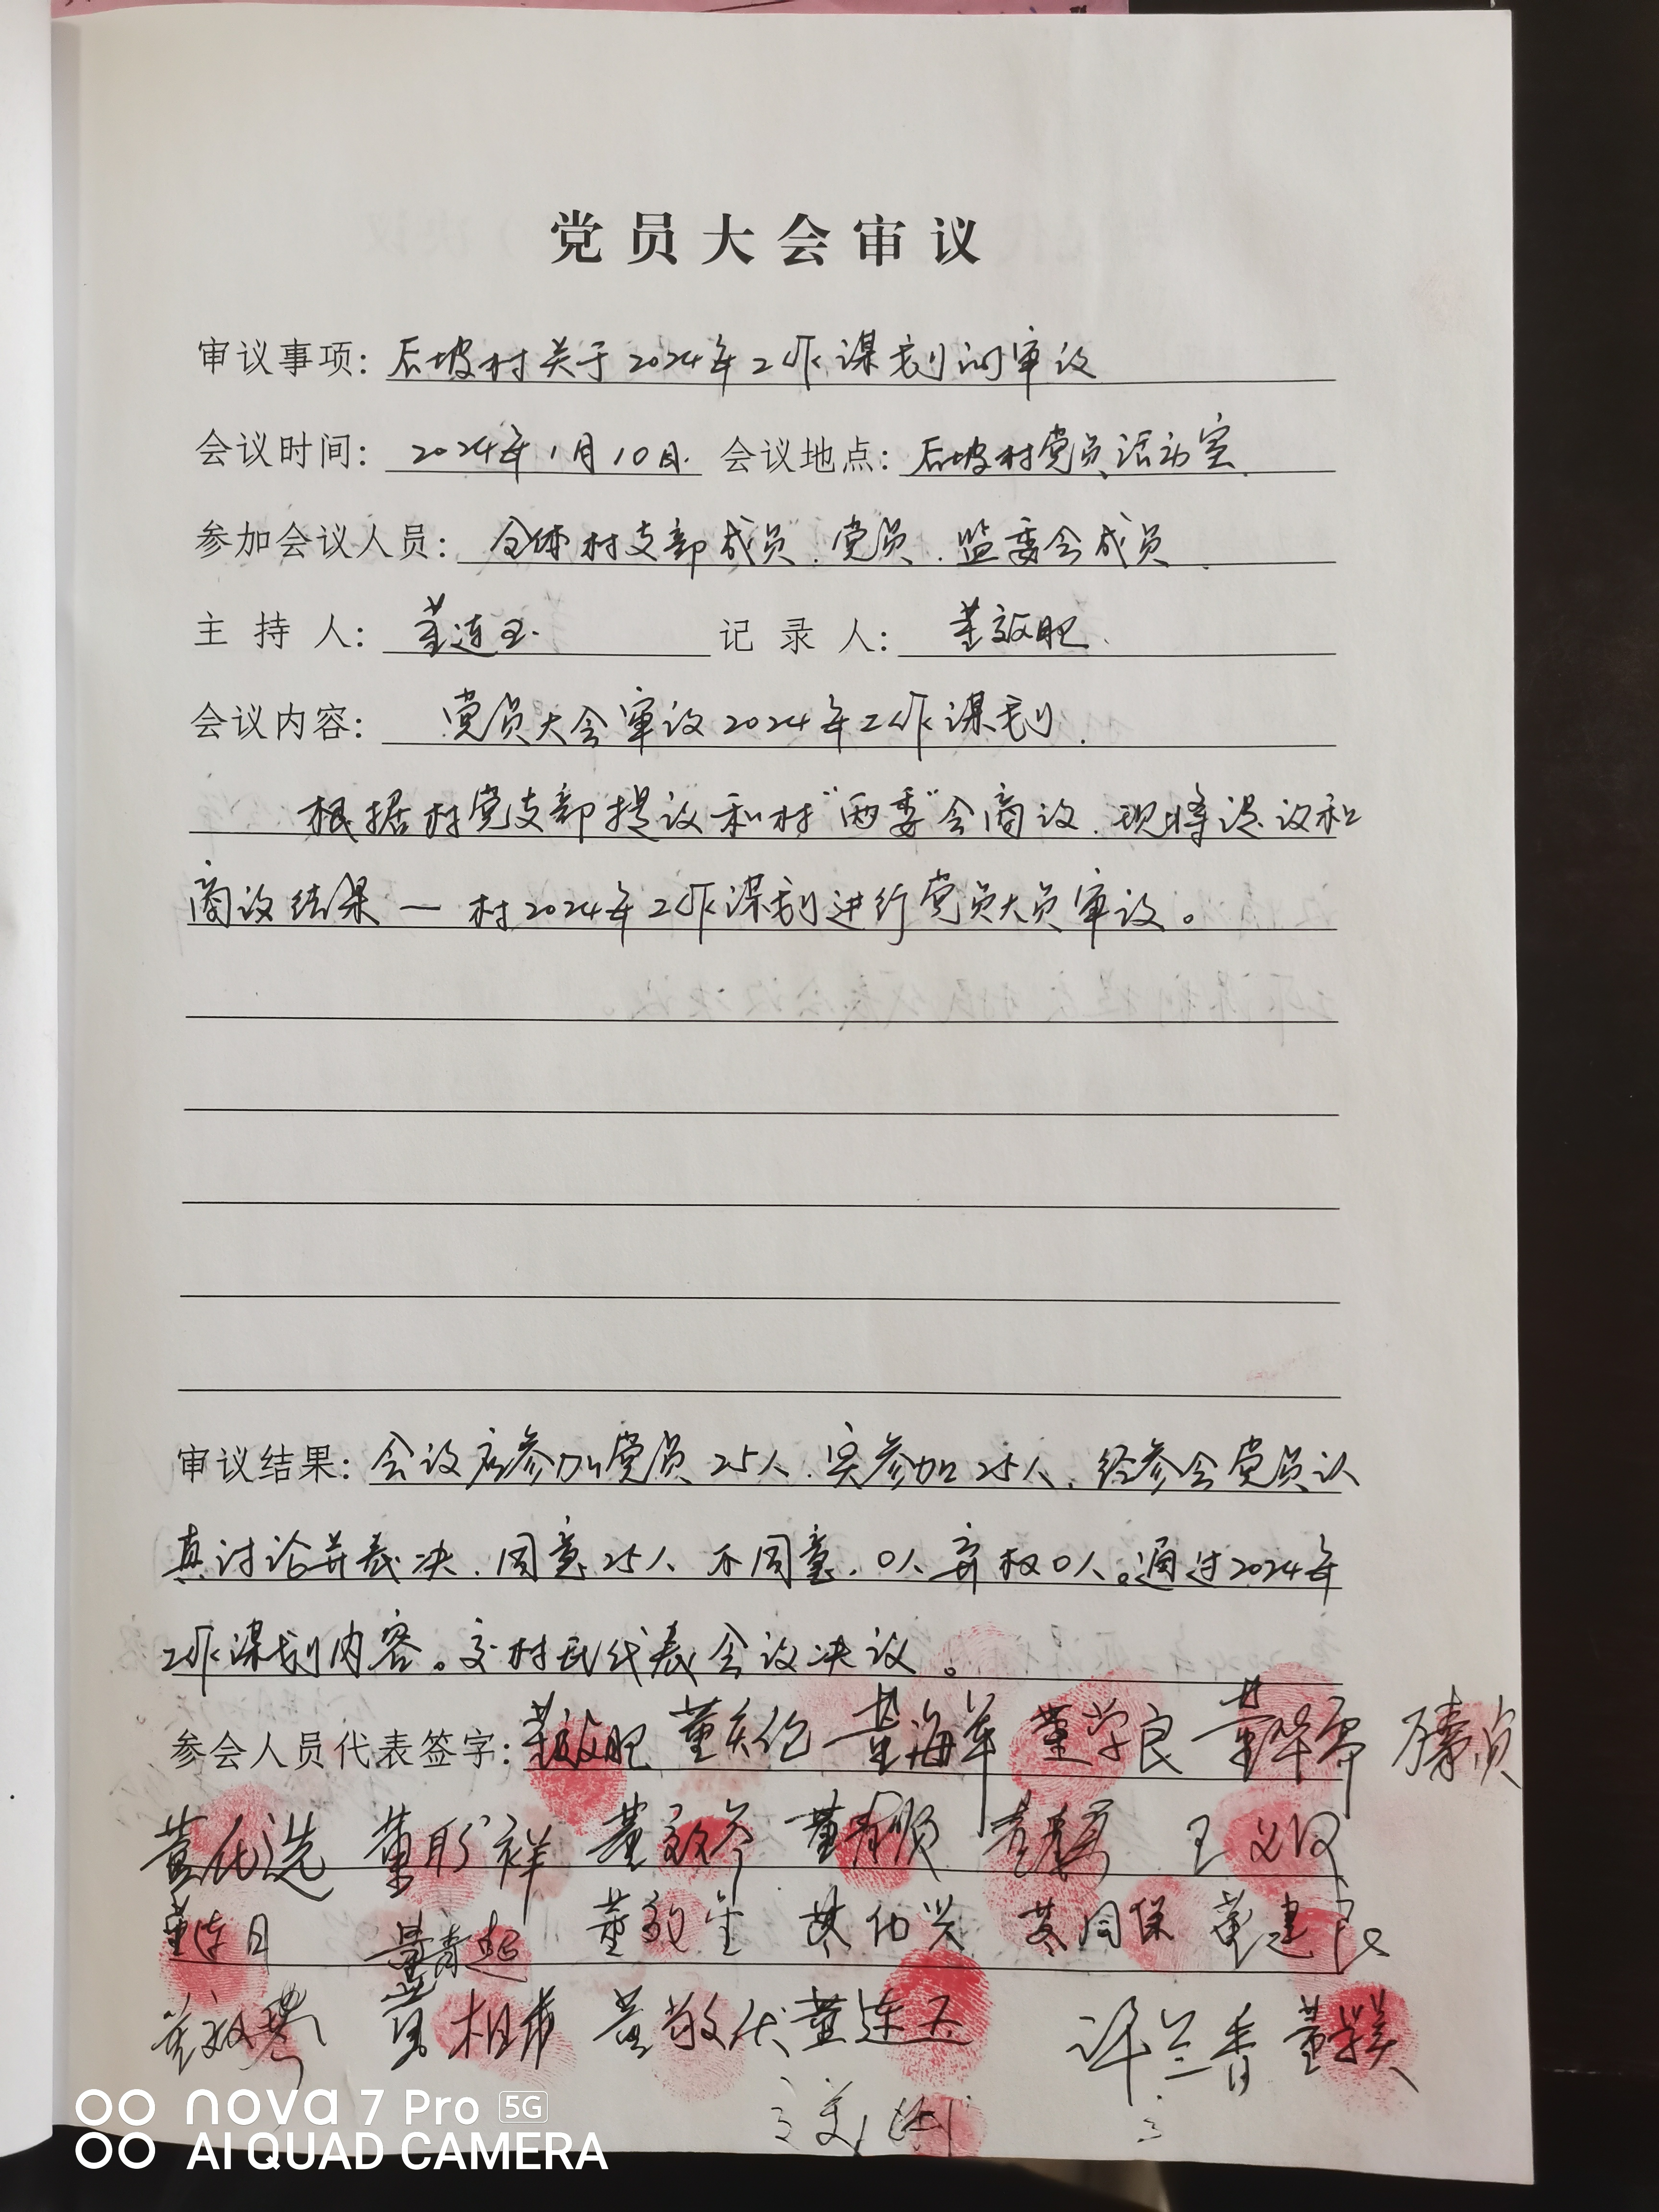 党员大会审议
审议事项：后坡村关于2024年工作谋划的审议
会议时间：2024年1月10日. 会议地点：后坡村党员活动室.
参加会议人员：全体村支部成员.党员.监委会成员.
主持人：董连玉. 记录人：董敏肥.
会议内容：党员大会审议2024年工作谋划.
根据村党支部提议和村“两委”会商议.现将提议和
商议结果一村2024年工作谋划进行党员大员审议。
审议结果：会议应参加党员25人.实参加25人.经参会党员认
真讨论并表决.同意25人 不同意.0人 弃权0人。通过2024年
工作谋划内容。交村民代表会议决议。
参会人员代表签字：董敏肥 董海军 董学良
王义汉
董敏生 董建良
董连玉 许兰香
nova 7 Pro 5G
AI QUAD CAMERA